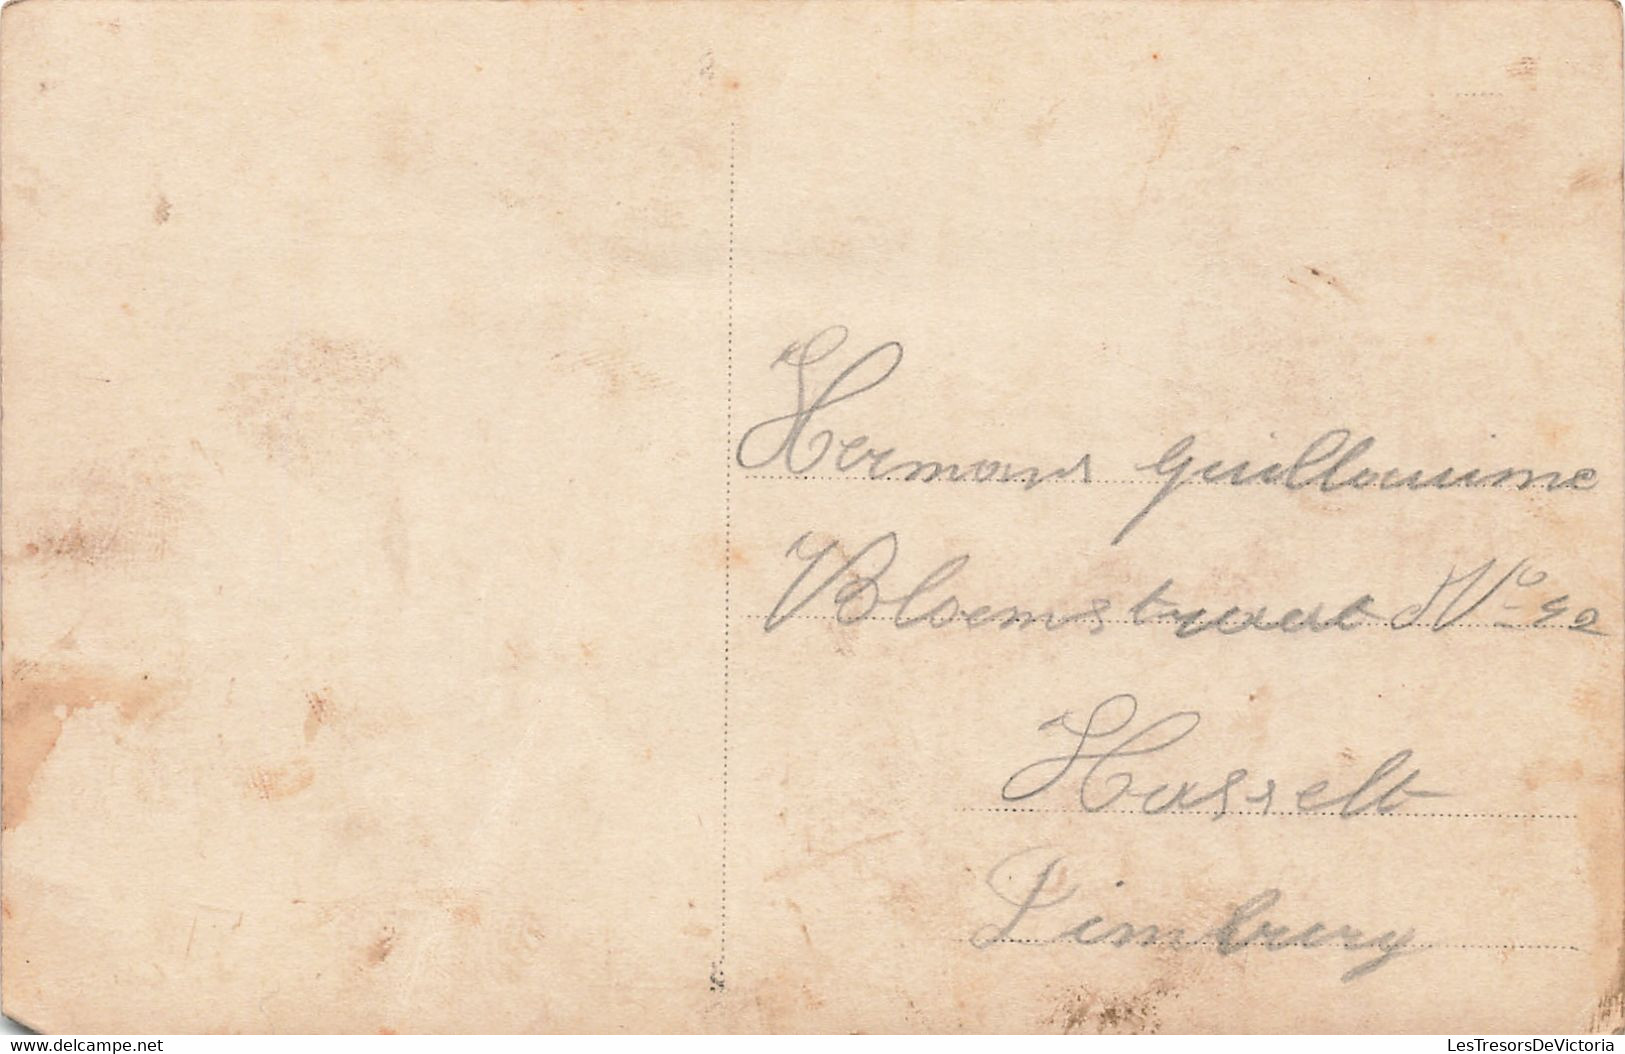 Hermans Guillaume
Bloemstraat No
Hasselt
Limburg
www.delcampe.net
LesTresorsDeVictoria